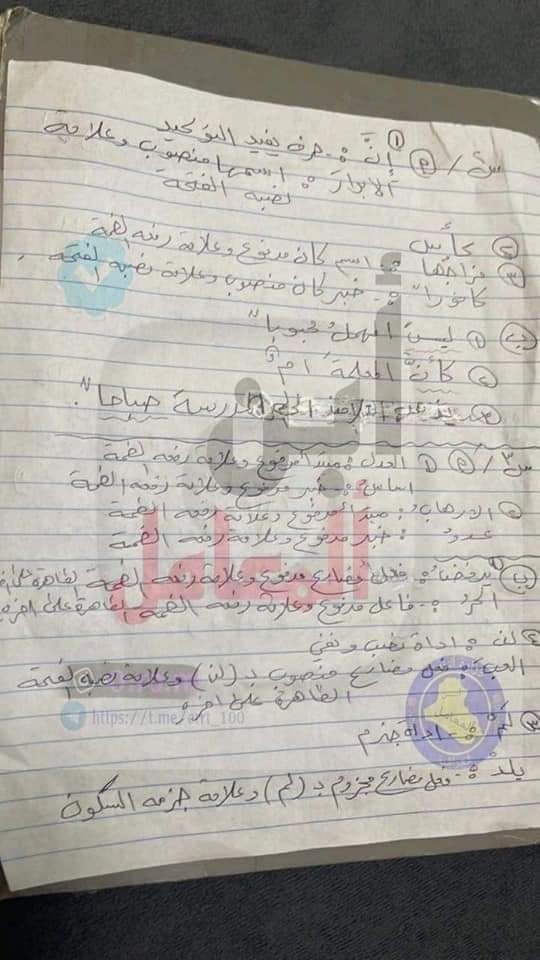 س٢/ أ ١ إنَّ :- حرف يفيد التوكيد
الابرارَ : اسمها منصوب وعلامة
نصبه الفتحة
٢ كأس
٣ مزاجها :- اسم كان مرفوع وعلامة رفعه الضمة
كافوراً :- خبر كان منصوب وعلامة نصبه الفتحة
ب ١ ليسَ المهملُ محبوباً"
٢ كأنَّ المعلمةَ أم
التلاميذ المدرسة صباحاً".
س٣/ أ ١ العدل : مبتدأ مرفوع وعلامة رفعه الضمة
اساسُ :- خبر مرفوع وعلامة رفعه الضمة
٢ الارهابُ : مبتدأ مرفوع وعلامة رفعه الضمة
عدوُ : خبر مرفوع وعلامة رفعه الضمة
ب يرفضُ :- فعل مضارع مرفوع وعلامة رفعه الضمة الظاهرة على اخره
الحرُ :- فاعل مرفوع وعلامة رفعه الضمة الظاهرة على اخره
لن :- اداة نصب ونفي
العبَ :- فعل مضارع منصوب بـ (لن) وعلامة نصبه الفتحة
الظاهرة على اخره
https://t.me/
٣ لمْ :- اداة جزم
يلدْ :- فعل مضارع مجزوم بـ (لم) وعلامة جزمه السكون
المعامل